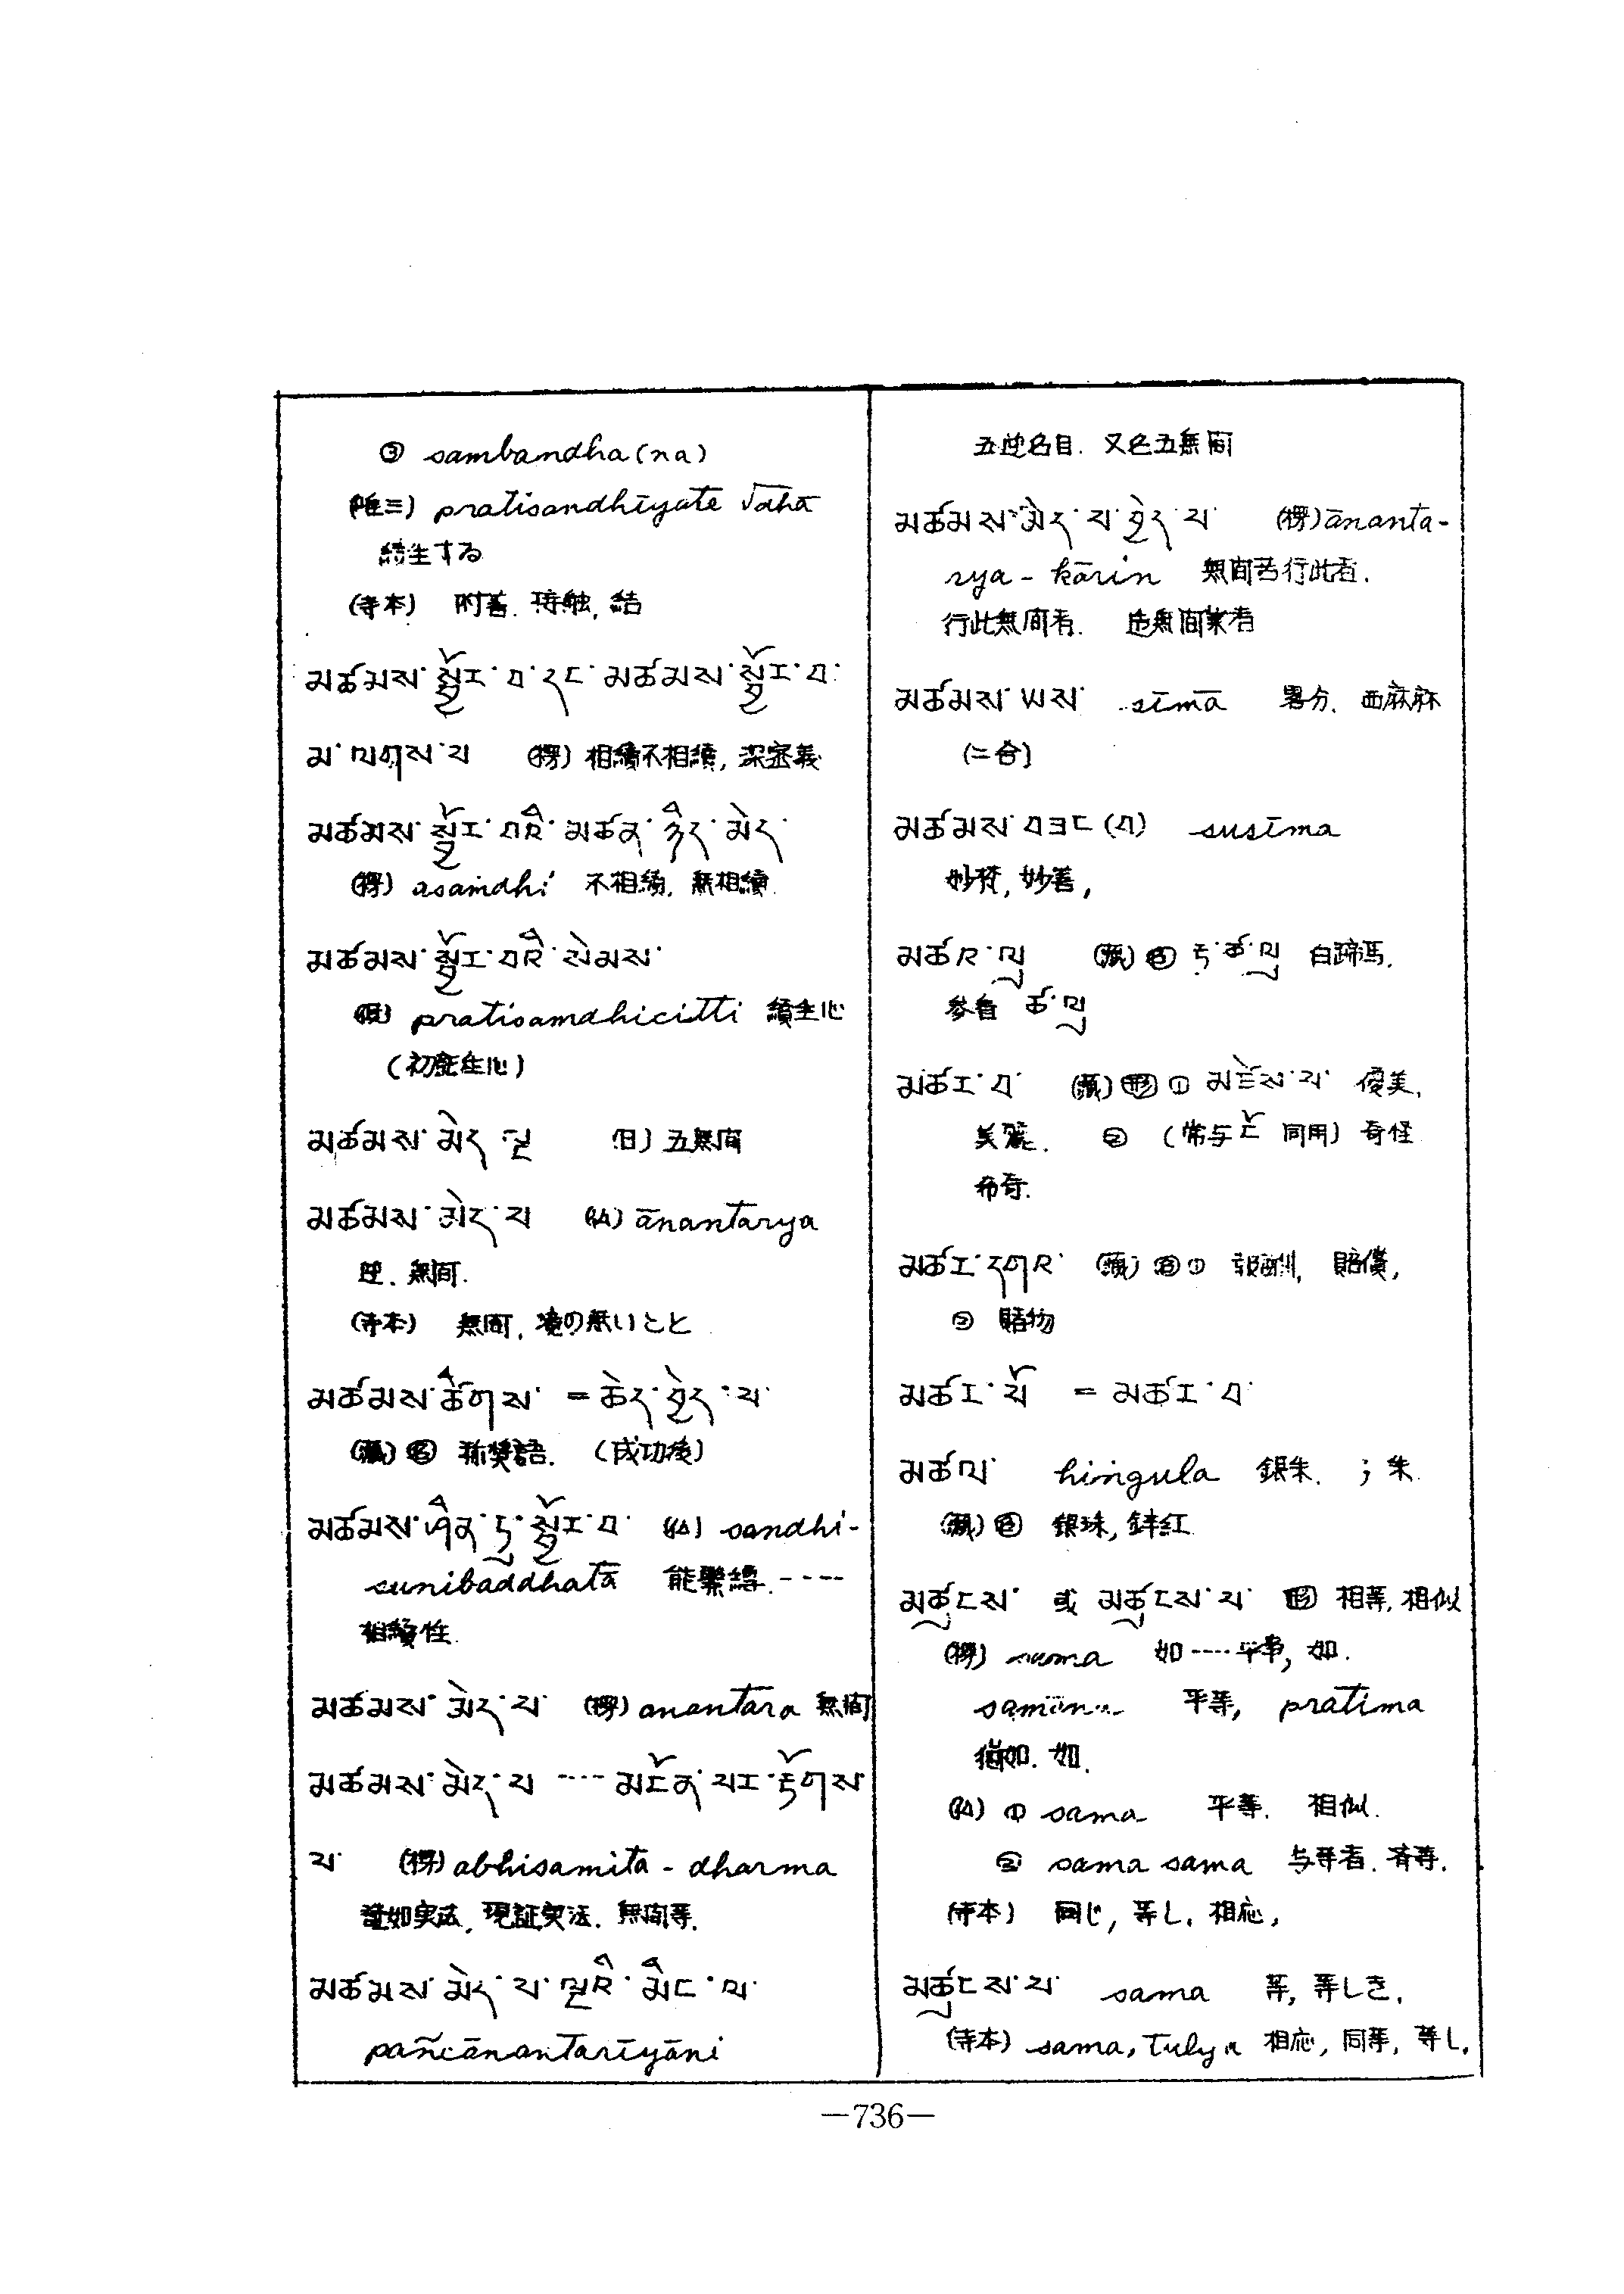 ③ sambandha(na)
(唯三) pratisandhīyate √dhā
續生する
(寺本) 附著. 接触, 結
མཚམས་སྦྱོར་བ་དང་མཚམས་སྦྱོར་བ་
མ་ལགས་པ (楞) 相續不相續, 深密義
མཚམས་སྦྱོར་བའི་མཚན་ཉིད་མེད་
(楞) asaṁdhi 不相續, 無相續.
མཚམས་སྦྱོར་བའི་སེམས་
pratisaṁdhicitti 續生心
(初產生心)
མཚམས་མེད་ལྔ 五無間
མཚམས་མེད་པ ānantarya
逆、無間.
(寺本) 無間, 境の無いこと
མཚམས་ཚིགས་ = ཆེད་བྱེད་པ་
(藏) 名 称奬語. (成功後)
མཚམས་ཤིན་ཏུ་སྦྱོར་བ་ sandhi-
sunibaddhatā 能緊縛.----
相續性.
མཚམས་མེད་པ་ (楞) anantara 無間
མཚམས་མེད་པ ---- མངོན་པར་རྟོགས་
པ་ (楞) abhisamita-dharma
證如実法, 現証実法. 無間等.
མཚམས་མེད་པ་ལྔའི་མིང་ལ་
pañcānantarīyāni
五逆名目. 又名五無間
མཚམས་མེད་པ་བྱེད་པ་ (楞) ānanta-
rya-kārin 無間苦行此者.
行此無間者. 造無間業者
མཚམས་ཡས་ sīmā 畧分、西麻麻
(二合)
མཚམས་བཟང་(བ) susīma
妙符, 妙善,
མཚར་ལུ (藏) 名 ཏ་ཚ་ལུ 白蹄馬.
参看 ཚ་ལུ
མཚར་བ་ (藏) 形 ① མཛེས་པ་ 優美,
美麗. ② (常与ངོ་同用) 奇怪
希奇.
མཚར་དགའ་ (藏) 名 ① 報酬, 賠償,
② 賭物
མཚར་པོ = མཚར་བ་
མཚལ་ hiṅgula 銀朱. ; 朱.
(藏) 名 銀珠, 鋅紅
མཚུངས་ 或 མཚུངས་པ་ 形 相等, 相似
(楞) sama 如----平等, 如.
平等, pratima
猶如. 如.
① sama 平等. 相似.
② sama sama 与等者. 齊等.
(寺本) 同じ, 等し. 相応,
མཚུངས་པ་ sama 等, 等しき,
(寺本) sama, tulya 相応, 同等, 等し,
—736—